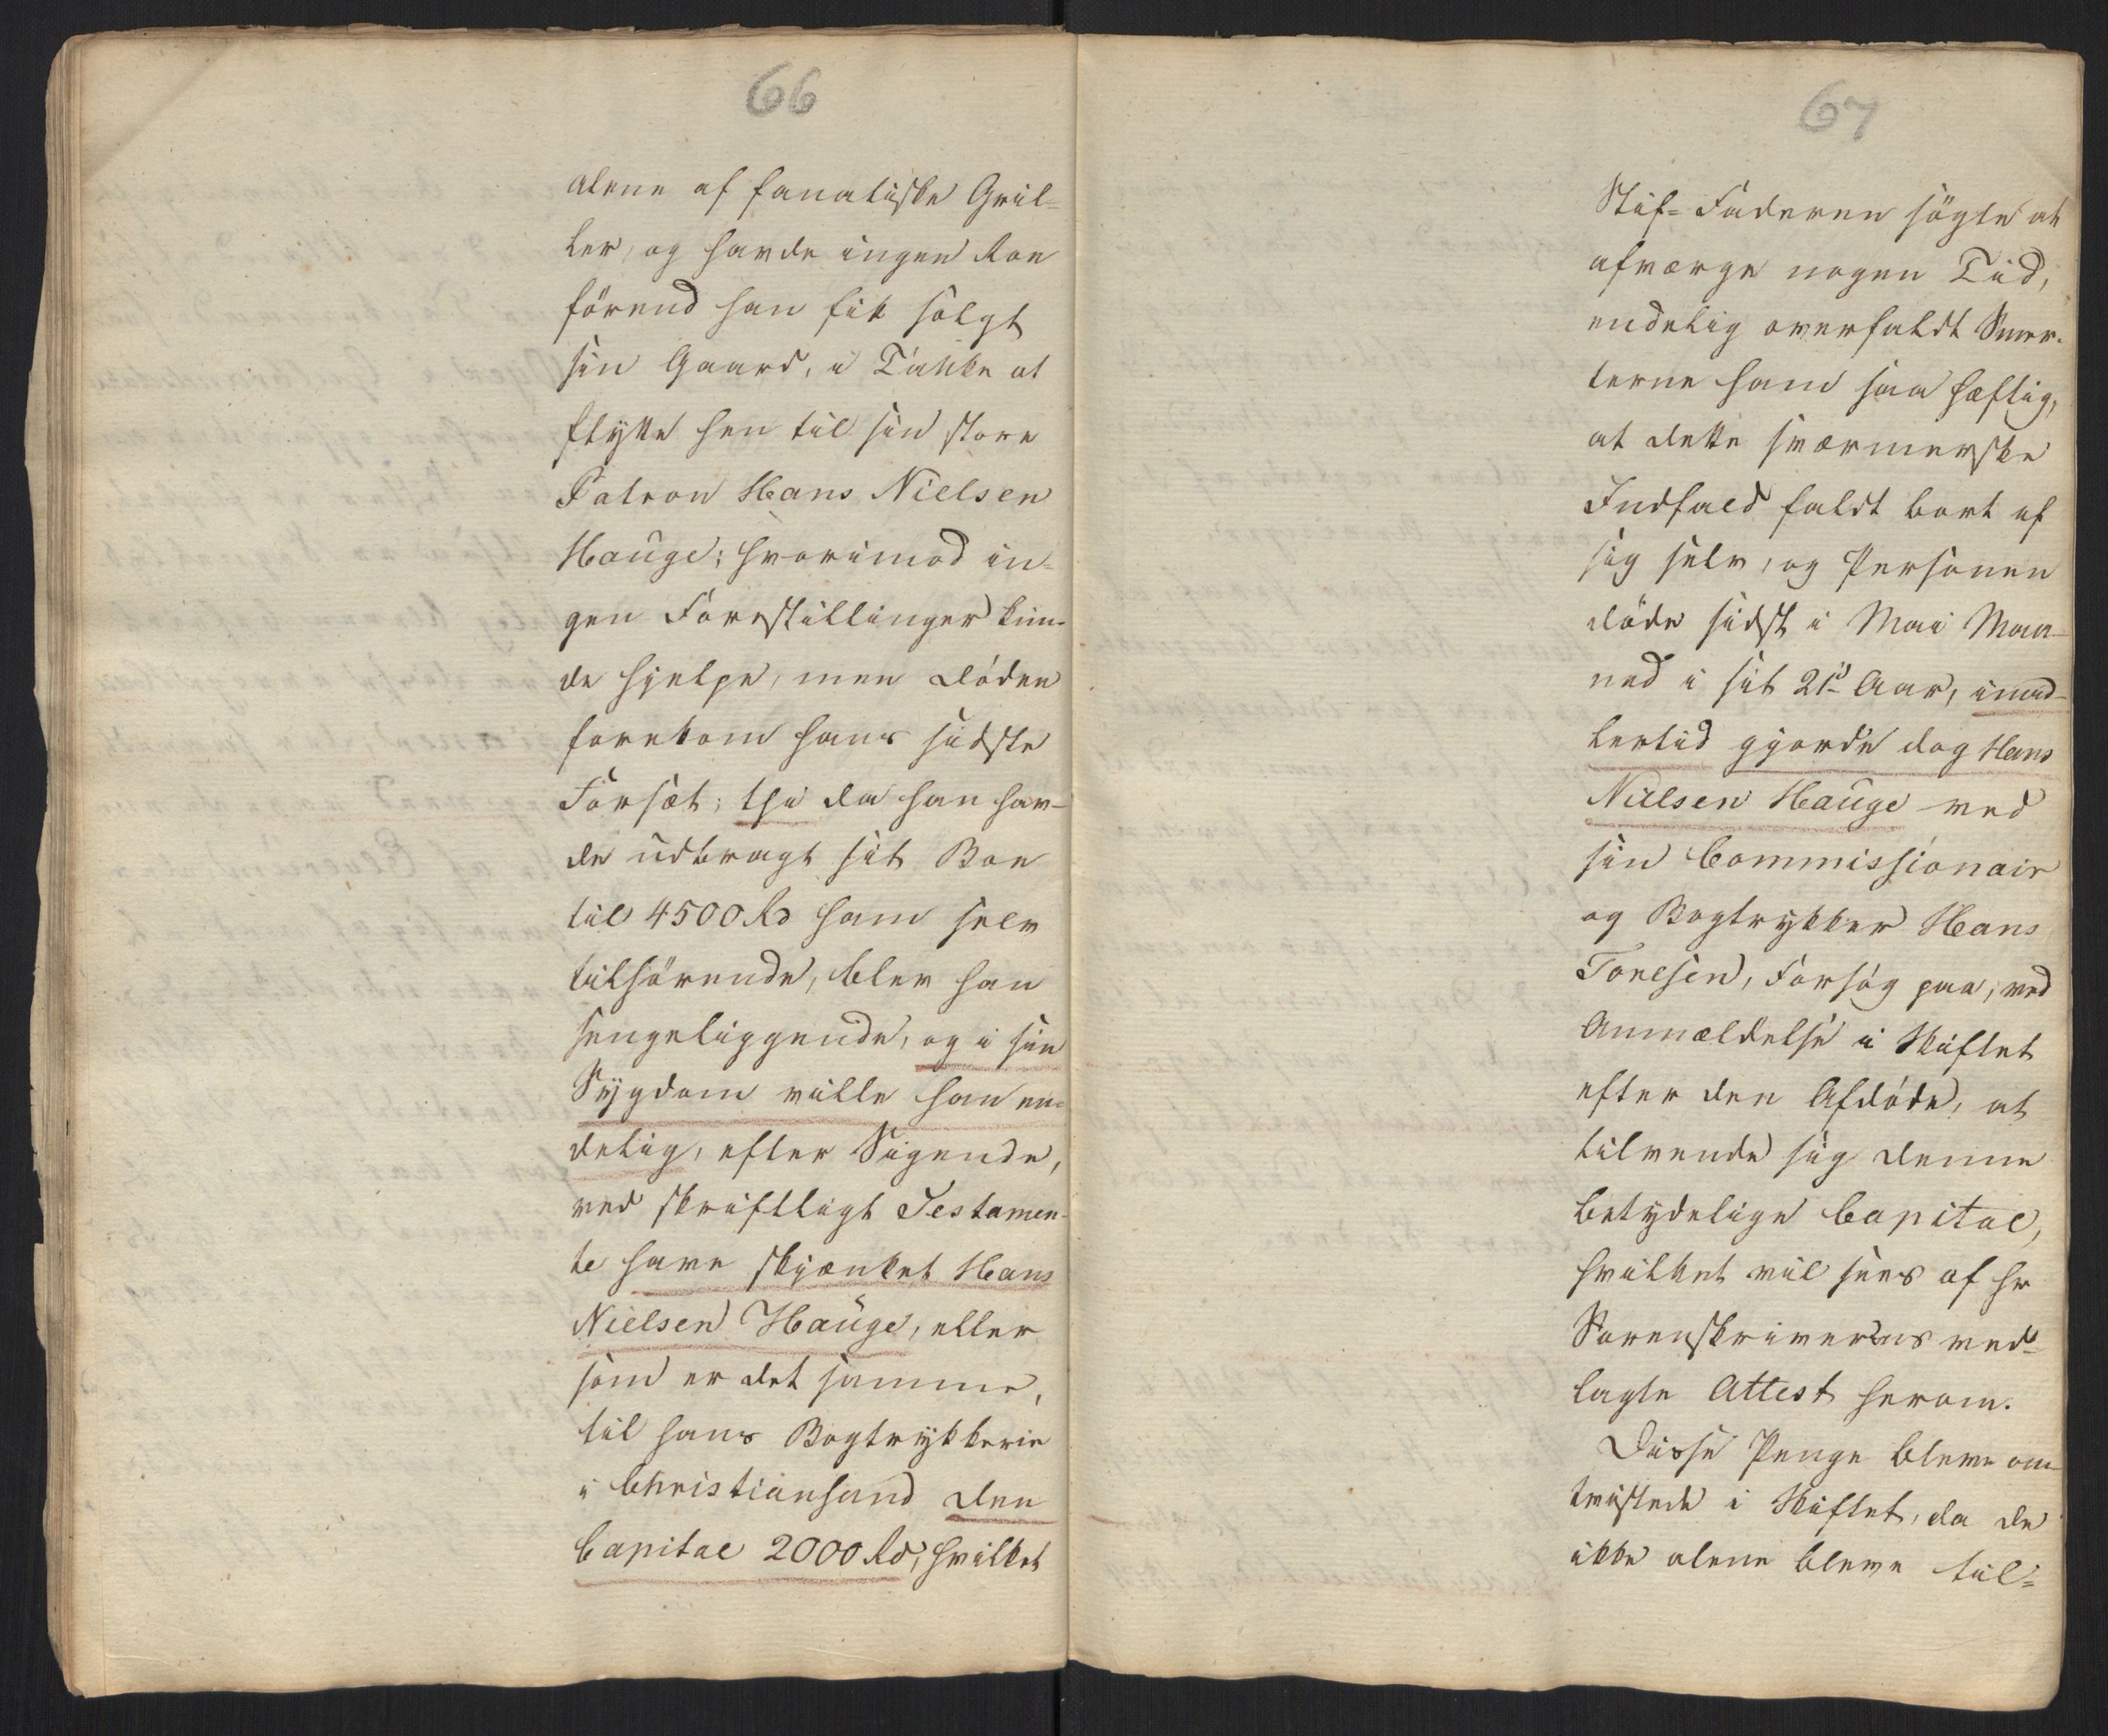 66
alene af fanatiske Gril=
ler, og havde ingen Roe
förend han fik solgt
sin Gaard, i Tanke at
flytte hen til sin store
Patron Hans Nielsen
Hauge; hvorimod in=
gen Forestillinger kun-
de hjelpe, men Döden
forekom hans sidste
Forsæt; thi da han hav-
de udbragt sit Boe
til 4500 Rd ham selv
tilhörende, blev han
sengeliggende, og i sin
Sygdom vilde han en=
delig, efter Sigende,
ved skriftligt Testamen-
te have skjænket Hans
Nielsen Hauge, eller
som er det samme,
til hans Bogtrykkerie
i Christiansand den
Capital 2000 Rd, hvilket
67
Stif=Faderen sögte at
afværge nogen Tid,
endelig overfaldt Smer-
terne ham saa hæftig,
at dette sværmerske
Indfald faldt bort af
sig selv, og Personen
döde sidst i Mai Maa-
ned i sit 21de Aar, imid-
lertid gjorde dog Hans
Nielsen Hauge ved
sin Commissionair
og Bogtrykker Hans
Tonesen, Forsög paa, ved
Anmældelse i Skiftet
efter den Afdöde, at
tilvende sig denne
betydelige Capital,
hvilket vil sees af Hr
Sorenskriverens ved-
lagte Attest herom.
Disse Penge bleve om-
tvistede i Skiftet, da de
ikke alene bleve til=